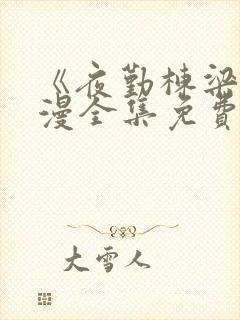 《夜勤栋梁
漫全集免费
大雪人